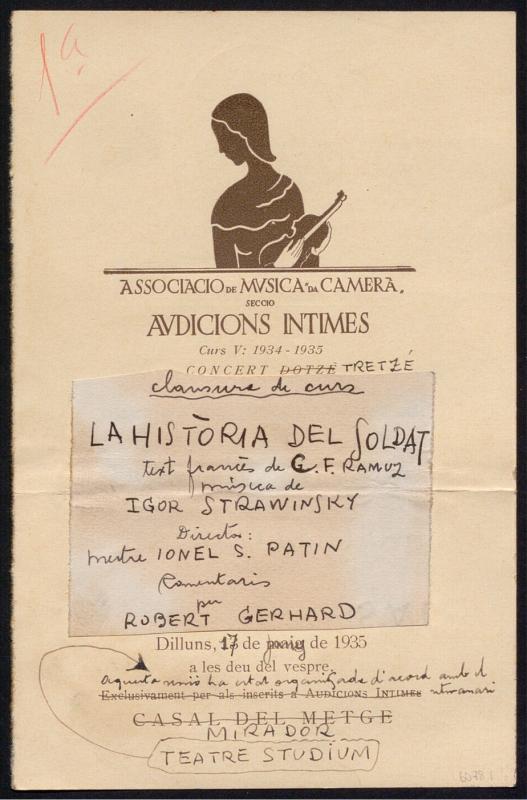 1ª
ASSOCIACIO DE MVSICA "DA CAMERA"
SECCIO
AVDICIONS INTIMES
Curs V: 1934 - 1935
CONCERT DOTZÈ TRETZÉ
clausura de curs
LA HISTÒRIA DEL SOLDAT
text francès de C. F. RAMUZ
música de
IGOR STRAWINSKY
Director:
mestre IONEL S. PATIN
Comentaris
per
ROBERT GERHARD
Dilluns, 17 de juny de 1935
a les deu del vespre.
Aquesta sessió ha estat organitzada d'acord amb el setmanari
Exclusivament per als inscrits a AUDICIONS INTIMES
CASAL DEL METGE
MIRADOR
TEATRE STUDIUM
6078.1